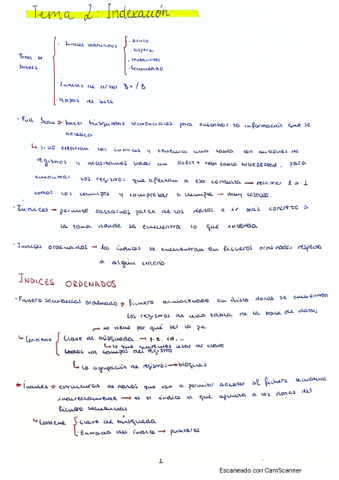 Tema 2: Indexación
Tipos de índices
· Índices ordenados
· Denso
· Disperso
· Multinivel
· Secundario
· Índices de árbol B+ / B
· Mapas de bits
· Full Scan → hacer búsquedas secuenciales para encontrar la información que se
necesita
↳ si no existieran los índices y tenemos una tabla con millones de
registros y necesitamos hacer un select * from tabla where cod, para
encontrar los registros que afectan a esa consulta → recorrer 1 a 1
todos los campos y comprobar si cumple → muy costoso
· Índices → permite saltarnos parte de los datos e ir más concreto a
la zona donde se encuentra lo que interesa
· Índices ordenados → los índices se encuentran en ficheros ordenados respecto
a algún criterio
ÍNDICES ORDENADOS
· Fichero secuencias ordenado → fichero almacenado en disco donde se encuentran
los registros de una tabla de la base de datos
→ no tiene por qué ser la pk
↳ Contiene
clave de búsqueda →
↳ lo que queremos usar de clave
todos los campos del registro
↳ la agrupación de registros → bloques
· Índices → estructuras de datos que van a permitir acceder al fichero secuencial
indirectamente → es el índice el que apunta a los datos del
fichero secuencial
↳ Contiene
· Clave de búsqueda
· Entrada del índice → punteros
1
Escaneado con CamScanner